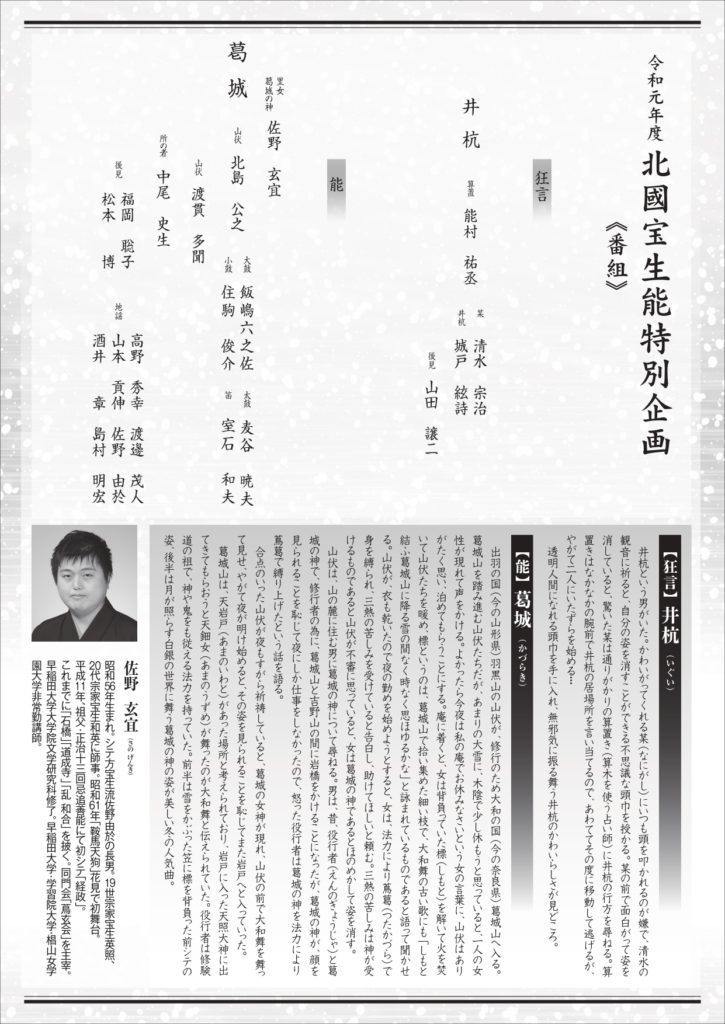 令和元年度 北國宝生能特別企画
《番組》
狂言
井杭
算置 能村 祐丞
某 清水 宗治
井杭 城戸 絃詩
後見 山田 譲二
能
葛城
里女
葛城の神 佐野 玄宜
山伏 北島 公之
山伏 渡貫 多聞
所の者 中尾 史生
大鼓 飯嶋六之佐
小鼓 住駒 俊介
太鼓 麦谷 暁夫
笛 室石 和夫
後見 福岡 聡子
松本 博
地謡
高野 秀幸 渡邊 茂人
山本 貢伸 佐野 由於
酒井 章 島村 明宏
【狂言】井杭(いくい)
井杭という男がいた。かわいがってくれる某(なにがし)にいつも頭を叩かれるのが嫌で、清水の
観音に祈ると、自分の姿を消すことができる不思議な頭巾を授かる。某の前で面白がって姿を
消していると、驚いた某は通りがかりの算置き(算木を使う占い師)に井杭の行方を尋ねる。算
置きはなかなかの腕前で井杭の居場所を言い当てるので、あわててその度に移動して逃げるが、
やがて二人にいたずらを始める…
透明人間になれる頭巾を手に入れ、無邪気に振る舞う井杭のかわいらしさが見どころ。
【能】葛城(かづらき)
出羽の国(今の山形県)羽黒山の山伏が、修行のため大和の国(今の奈良県)葛城山へ入る。
葛城山を踏み進む山伏たちだが、あまりの大雪に、木陰で少し休もうと思っていると、一人の女
性が現れて声をかける。よかったら今夜は私の庵でお休みなさいという女の言葉に、山伏はあり
がたく思い、泊めてもらうことにする。庵に着くと、女は背負っていた標(しもと)を解いて火を焚
いて山伏たちを暖め、標というのは、葛城山で拾い集めた細い枝で、大和舞の古い歌にも「しもと
結ふ葛城山に降る雪の間なく時なく思ほゆるかな」と詠まれているものであると語って聞かせ
る。山伏が、衣も乾いたので夜の勤めを始めようとすると、女は、法力により蔦葛(つたかづら)で
身を縛られ、三熱の苦しみを受けていると告白し、助けてほしいと頼む。三熱の苦しみは神が受
けるものであると山伏が不審に思っていると、女は葛城の神であるとほのめかして姿を消す。
山伏は、山の麓に住む男に葛城の神について尋ねる。男は、昔、役行者(えんのぎょうじゃ)と葛
城の神で、修行者の為に、葛城山と吉野山の間に岩橋をかけることになったが、葛城の神が、顔を
見られることを恥じて夜にしか仕事をしなかったので、怒った役行者は葛城の神を法力により
蔦葛で縛り上げたという話を語る。
合点のいった山伏が夜もすがら祈祷していると、葛城の女神が現れ、山伏の前で大和舞を舞っ
て見せ、やがて夜が明け始めると、その姿を見られることを恥じてまた岩戸へと入っていった。
葛城山は、天岩戸(あまのいわと)があった場所と考えられており、岩戸に入った天照大神に出
てきてもらおうと天鈿女(あまのうずめ)が舞ったのが大和舞と伝えられていた。役行者は修験
道の祖で、神や鬼をも従える法力を持っていた。前半は雪をかぶった笠に標を背負った前シテの
姿、後半は月が照らす白銀の世界に舞う葛城の神の姿が美しい冬の人気曲。
佐野 玄宜(さの げんき)
昭和56年生まれ。シテ方宝生流佐野由於の長男。19世宗家宝生英照、
20代宗家宝生和英に師事。昭和61年「鞍馬天狗」花見で初舞台。
平成11年、祖父・正治十三回忌追善能にて初シテ「経政」。
これまでに「石橋」「道成寺」「乱 和合」を披く。同門会「蔦玄会」を主宰。
早稲田大学大学院文学研究科修了。早稲田大学・学習院大学・椙山女学
園大学非常勤講師。